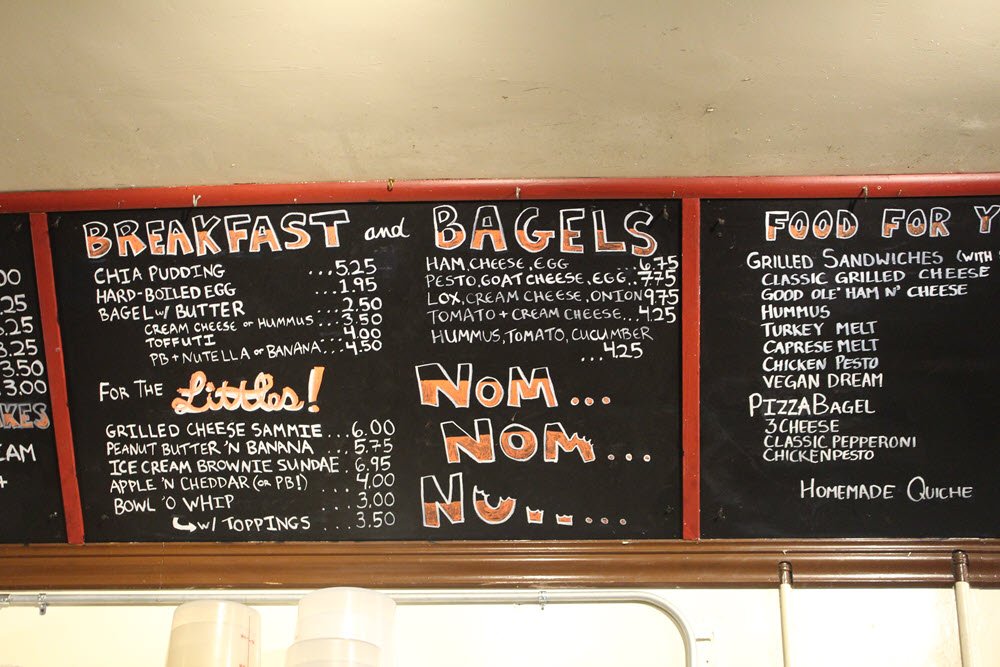 00
.25
.25
3.25
3.50
3.00
AKES
EAM
+
BREAKFAST and BAGELS
CHIA PUDDING ...5.25
HARD-BOILED EGG ...1.95
BAGEL w/ BUTTER ...2.50
CREAM CHEESE or HUMMUS...3.50
TOFFUTI ...4.00
PB + NUTELLA or BANANA...4.50
FOR THE Littles!
GRILLED CHEESE SAMMIE...6.00
PEANUT BUTTER 'N BANANA...5.75
ICE CREAM BROWNIE SUNDAE.6.95
APPLE 'N CHEDDAR (OR PB!) ...4.00
BOWL 'O WHIP ...3.00
W/ TOPPINGS ...3.50
HAM, CHEESE, EGG ...6.75
PESTO, GOAT CHEESE, EGG..7.75
LOX, CREAM CHEESE, ONION 9.75
TOMATO + CREAM CHEESE...4.25
HUMMUS, TOMATO, CUCUMBER
...4.25
NOM...
NOM....
NU.......
FOOD FOR Y
GRILLED SANDWICHES (WITH
CLASSIC GRILLED CHEESE
GOOD OLE' HAM N' CHEESE
HUMMUS
TURKEY MELT
CAPRESE MELT
CHICKEN PESTO
VEGAN DREAM
PIZZA BAGEL
3 CHEESE
CLASSIC PEPPERONI
CHICKEN PESTO
HOMEMADE QUICHE